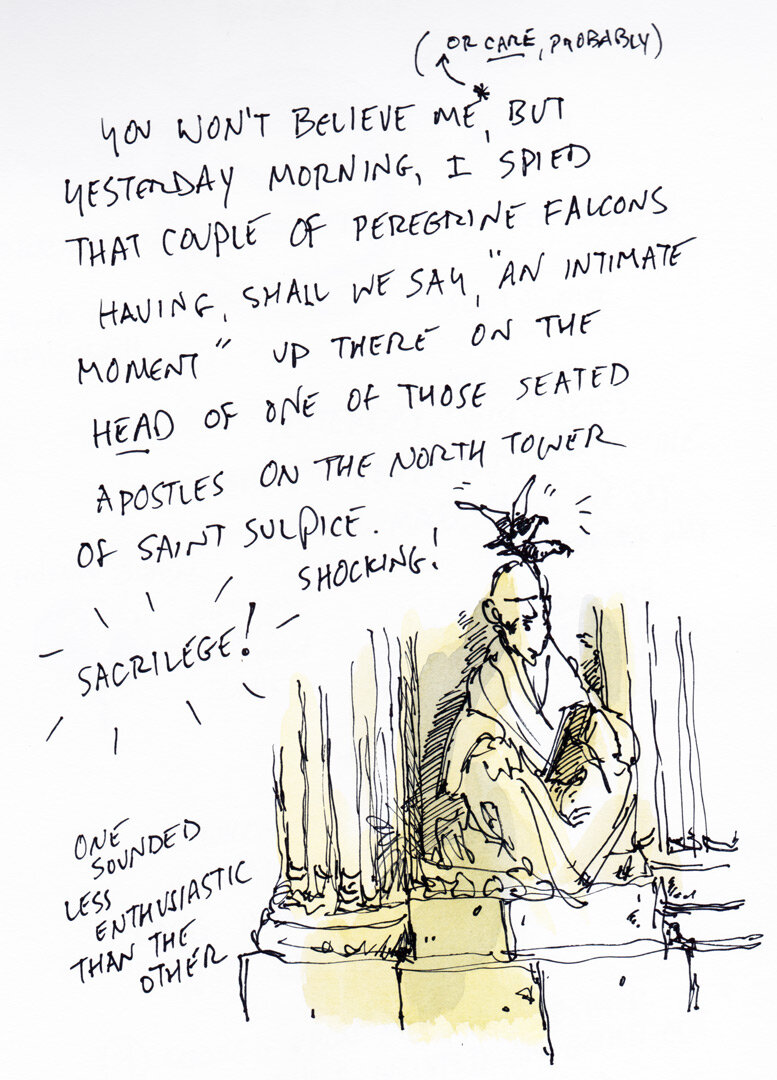 (OR CARE, PROBABLY)
YOU WON'T BELIEVE ME*, BUT
YESTERDAY MORNING, I SPIED
THAT COUPLE OF PEREGRINE FALCONS
HAVING, SHALL WE SAY, "AN INTIMATE
MOMENT" UP THERE ON THE
HEAD OF ONE OF THOSE SEATED
APOSTLES ON THE NORTH TOWER
OF SAINT SULPICE.
SHOCKING!
SACRILEGE!
ONE
SOUNDED
LESS
ENTHUSIASTIC
THAN THE
OTHER